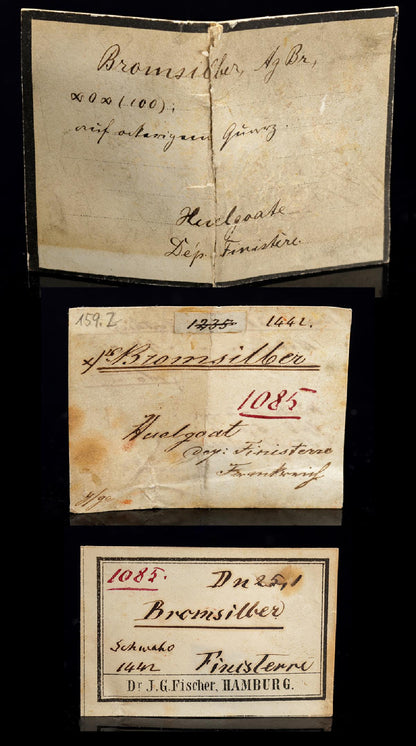 Bromsilber, AgBr,
∞O∞(100);
auf ockerigem Quarz.
Huelgoate
Dép. Finistère.
159.Z
1235 1442.
Bromsilber
1085
Huelgoat
dep: Finisterre
Frankreich
1085. Dn 25,1
Bromsilber
Schwabo
1442 Finisterre
Dr J.G. Fischer, HAMBURG.